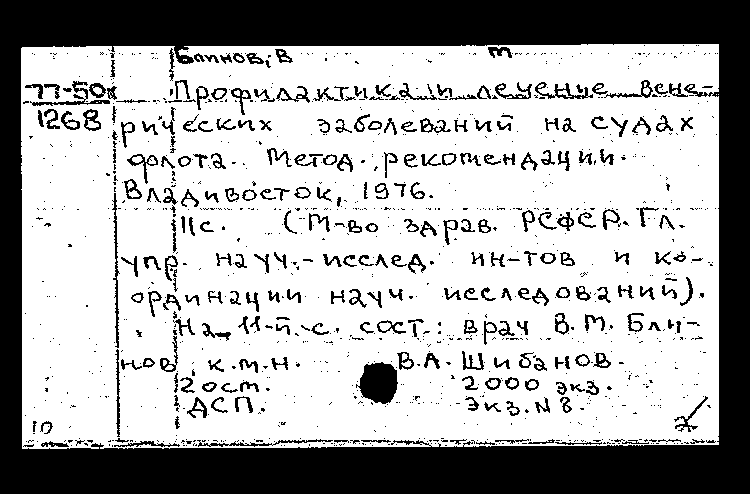 Блинов, В м
77-50к Профилактика и лечение вене-
1268 рических заболеваний на судах
флота. Метод. рекомендации.
Владивосток, 1976.
11с. (М-во здрав. РСФСР. Гл.
упр. науч.-исслед. ин-тов и ко-
ординации науч. исследований).
На 11-й с. сост.: врач В.М. Бли-
нов, к.м.н. В.А. Шибанов.
20ст. 2000 экз.
ДСП. Экз. N 8.
10